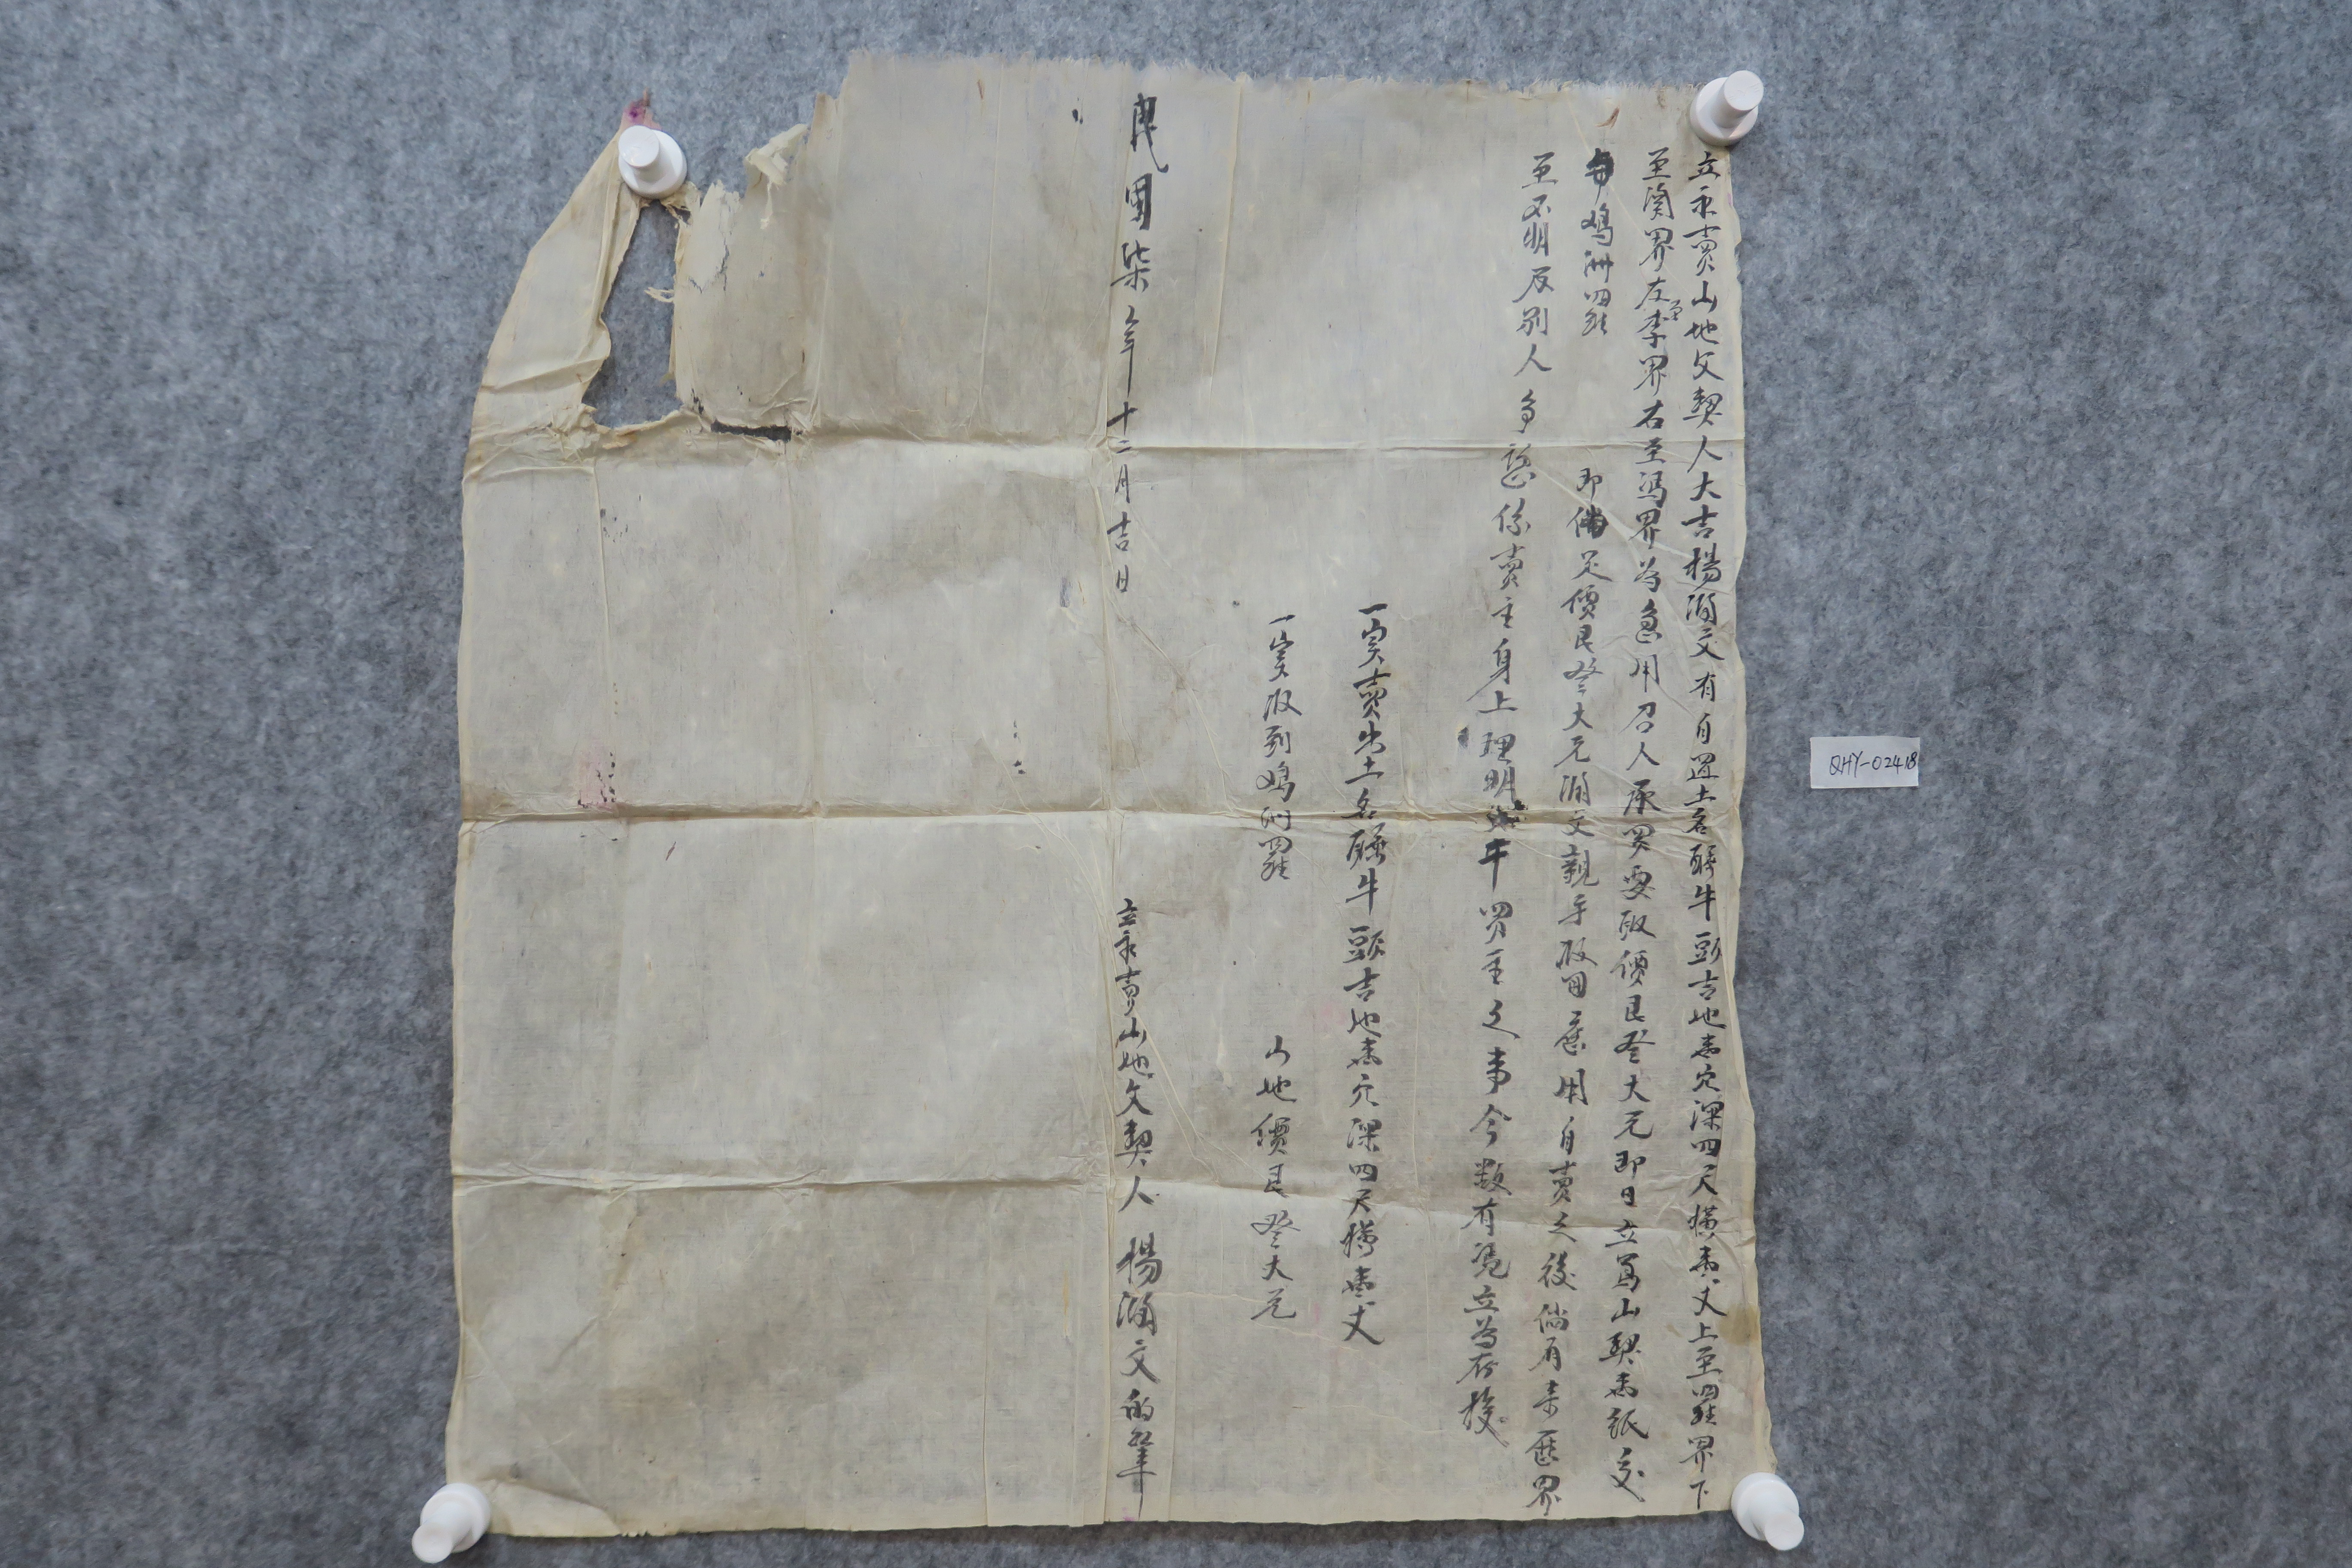 立永賣山地文契人大吉楊湖文有自置土名騎牛頭吉地壹穴深四尺橫壹丈上至四維界下
至潤界左至李界右至馮界為急用召人承買要取價艮叁大元即日立寫山契壹紙交
與鴻洲四維
即備足價艮叁大元湖文親手取回應用自賣之後倘有來歷界
至不明及別人爭惡係賣主身上理明 干買主之事今欲有憑立為存據
一實賣出土名騎牛頭吉地壹穴深四尺橫壹丈
一實收到鴻洲四維
山地價艮叁大元
民國柒年十二月吉日
立永賣山地文契人 楊湖文的筆
QHY-02418